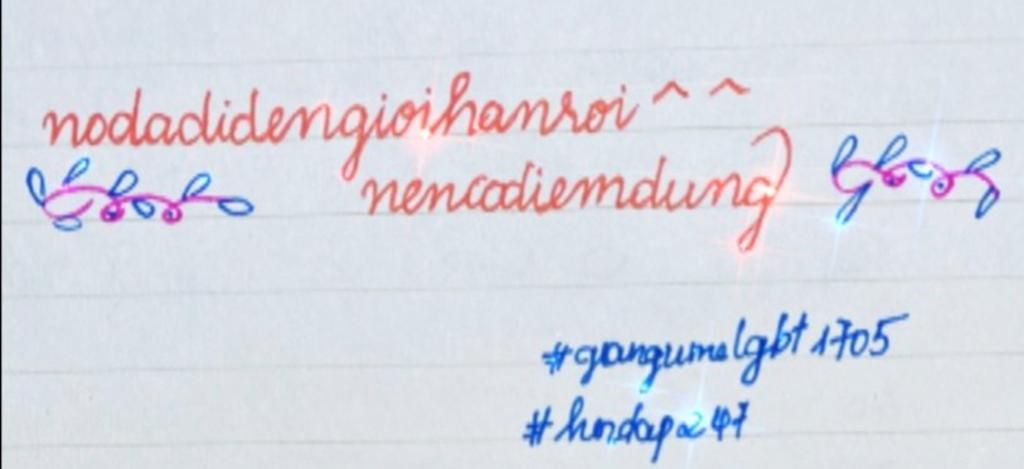 nodadidengioihanroi ^ ^
nencodiemdung
#gangumelgbt1705